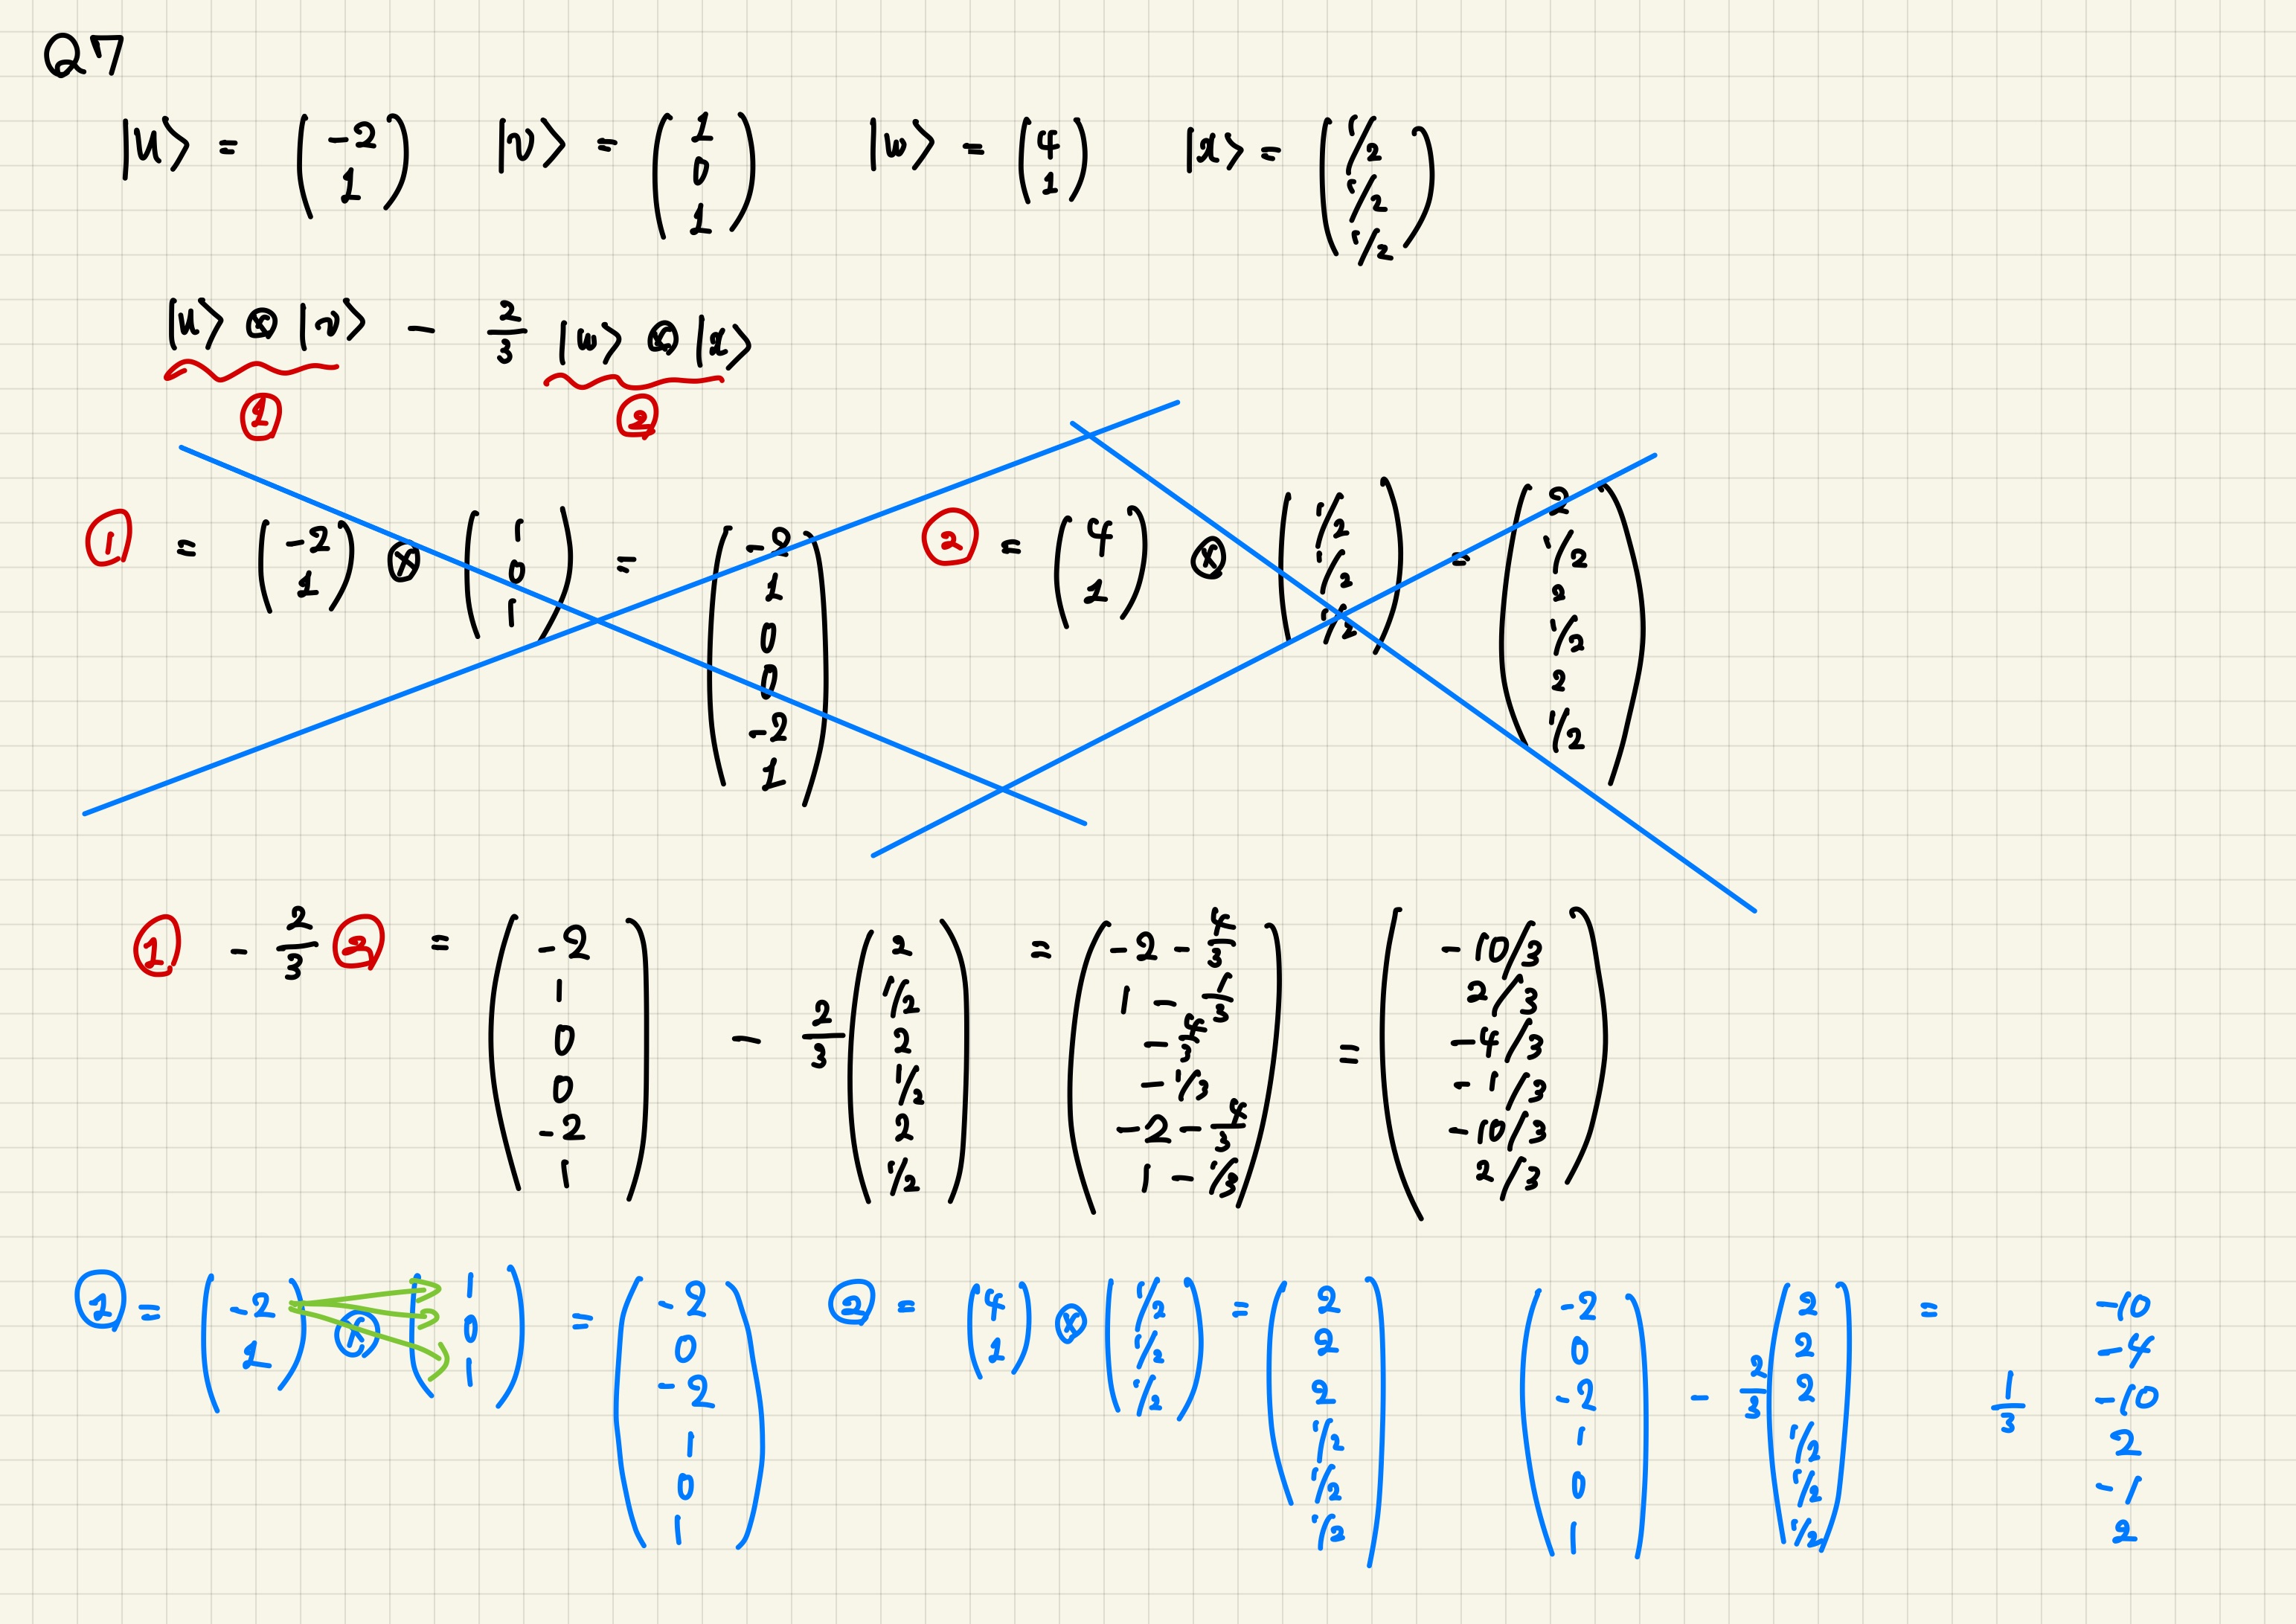 Q7
|u⟩ = (-2 1) |v⟩ = (1 0 1) |w⟩ = (4 1) |x⟩ = (1/2 1/2 1/2)
|u⟩ ⊗ |v⟩ - 2/3 |w⟩ ⊗ |x⟩
① ②
① = (-2 1) ⊗ (1 0 1) = (-2 1 0 0 -2 1) ② = (4 1) ⊗ (1/2 1/2 1/2) = (2 1/2 2 1/2 2 1/2)
① - 2/3 ② = (-2 1 0 0 -2 1) - 2/3 (2 1/2 2 1/2 2 1/2) = (-2-4/3 1-1/3 -4/3 -1/3 -2-4/3 1-1/3) = (-10/3 2/3 -4/3 -1/3 -10/3 2/3)
① = (-2 1) ⊗ (1 0 1) = (-2 0 -2 1 0 1) ② = (4 1) ⊗ (1/2 1/2 1/2) = (2 2 2 1/2 1/2 1/2) (-2 0 -2 1 0 1) - 2/3 (2 2 2 1/2 1/2 1/2) = 1/3 -10 -4 -10 2 -1 2